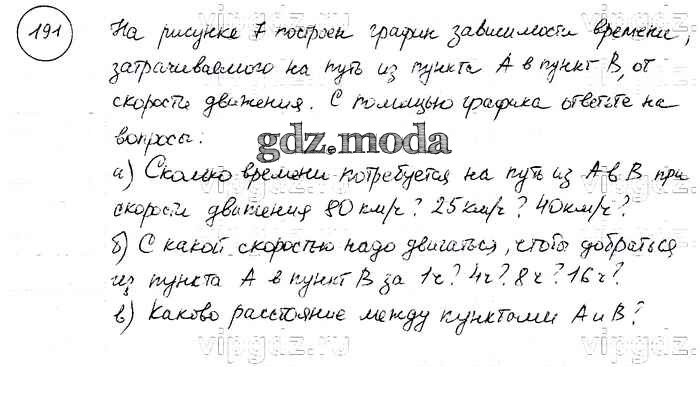 191
На рисунке 7 построен график зависимости времени,
затрачиваемого на путь из пункта А в пункт В, от
скорости движения. С помощью графика ответьте на
вопросы:
gdz.moda
а) Сколько времени потребуется на путь из А в В при
скорости движения 80 км/ч? 25 км/ч? 40 км/ч?
б) С какой скоростью надо двигаться, чтобы добраться
из пункта А в пункт В за 1ч? 4ч? 8ч? 16ч?
в) Каково расстояние между пунктами А и В?
vipgdz.ru
vipgdz.ru